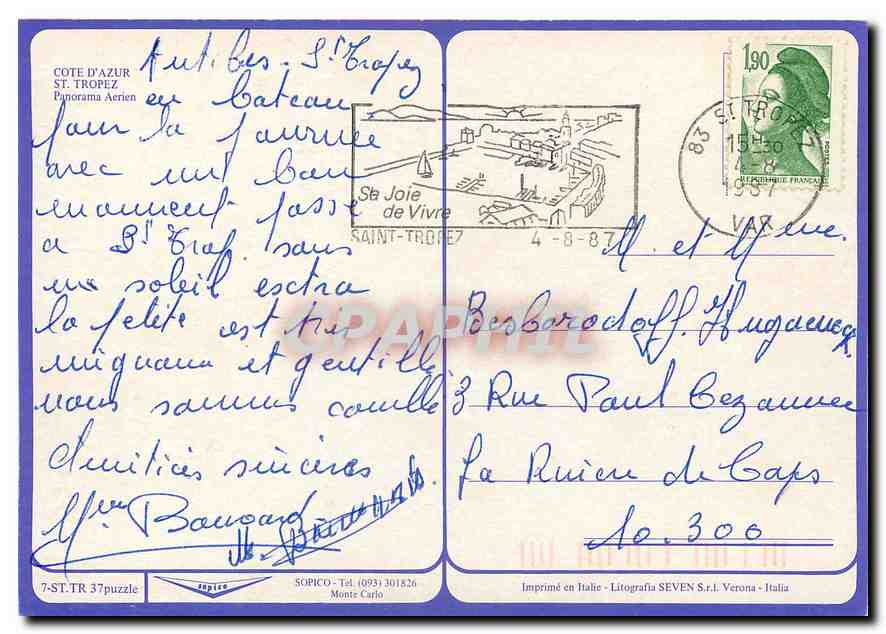 COTE D'AZUR
ST. TROPEZ
Panorama Aerien
Antibes - St Tropez
en bateau
pour la journée
avec un bon
moment passé
a St Trop. sous
un soleil esctra
la petite est tres
mignonne et gentille
nous sommes comblé
Amitiés sincères
Mme Bonnard
7-ST.TR 37puzzle
sopico
SOPICO - Tel. (093) 301826
Monte Carlo
1,90
POSTES
REPUBLIQUE FRANÇAISE
83 ST TROPEZ
15H30
4-8
1987
VAR
Sa Joie
de Vivre
SAINT-TROPEZ 4-8-87
M. et Mme.
Besborodoff
3 Rue Paul Cezanne
La Riviere de Corps
10.300
Imprimé en Italie - Litografia SEVEN S.r.l. Verona - Italia
CPAPHIL